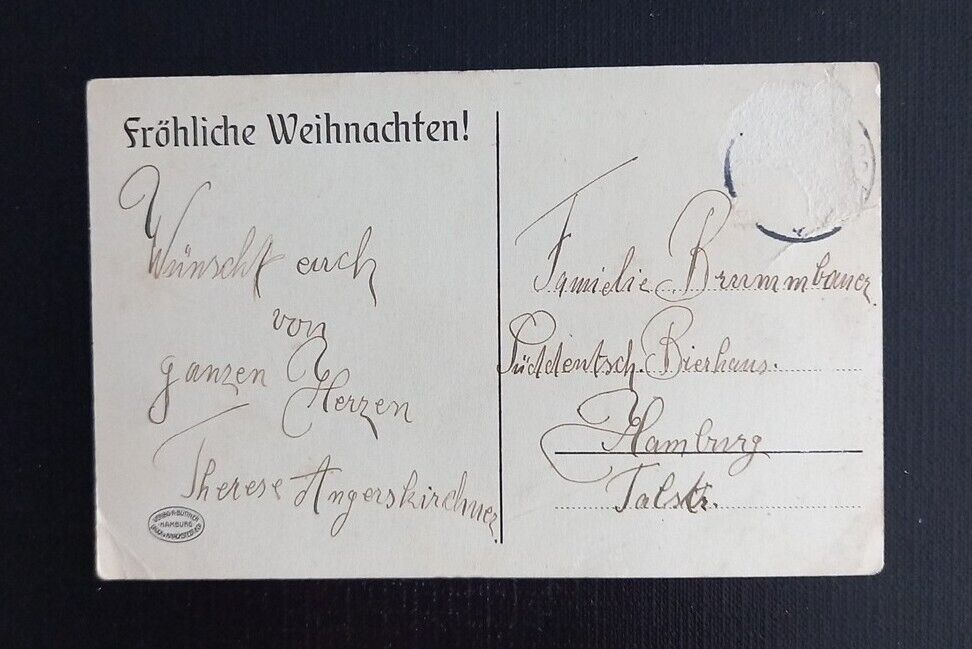 Fröhliche Weihnachten!
Wünscht euch
von
ganzen Herzen
Therese Angerskirchner
Familie Brummbauer
Süddeutsch. Bierhaus.
Hamburg
Talstr.
HAMBURG